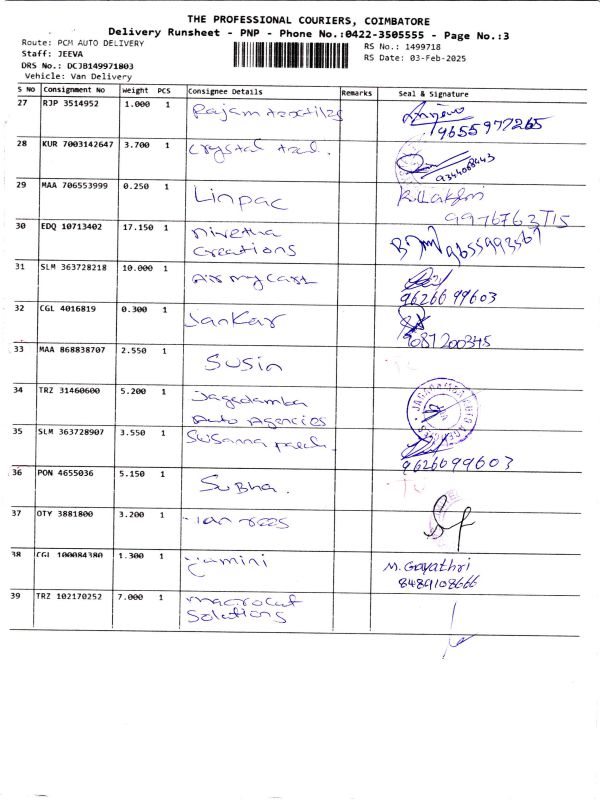 THE PROFESSIONAL COURIERS, COIMBATORE
Delivery Runsheet - PNP - Phone No.:0422-3505555 - Page No.:3
Route: PCM AUTO DELIVERY
RS No.: 1499718
Staff: JEEVA
RS Date: 03-Feb-2025
DRS No.: DCJB149971803
Vehicle: Van Delivery
S No Consignment No Weight PCS Consignee Details Remarks Seal & Signature
27 RJP 3514952 1.000 1 Rajam
9655977265
28 KUR 7003142647 3.700 1 Crystal
9344068443
29 MAA 706553999 0.250 1 Linpac
30 EDQ 10713402 17.150 1 Nivetha
Creations
31 SLM 363728218 10.000 1
9626699603
32 CGL 4016819 0.300 1 Jankar
9087200345
33 MAA 868838707 2.550 1 Susin
34 TRZ 31460600 5.200 1 Jagadamba
Auto Agencies
35 SLM 363728907 3.550 1 Susanna
9626699603
36 PON 4655036 5.150 1 Subha.
37 OTY 3881800 3.200 1
38 CGL 100084380 1.300 1 yamini M. Gayathri
8489108666
39 TRZ 102170252 7.000 1
Solutions